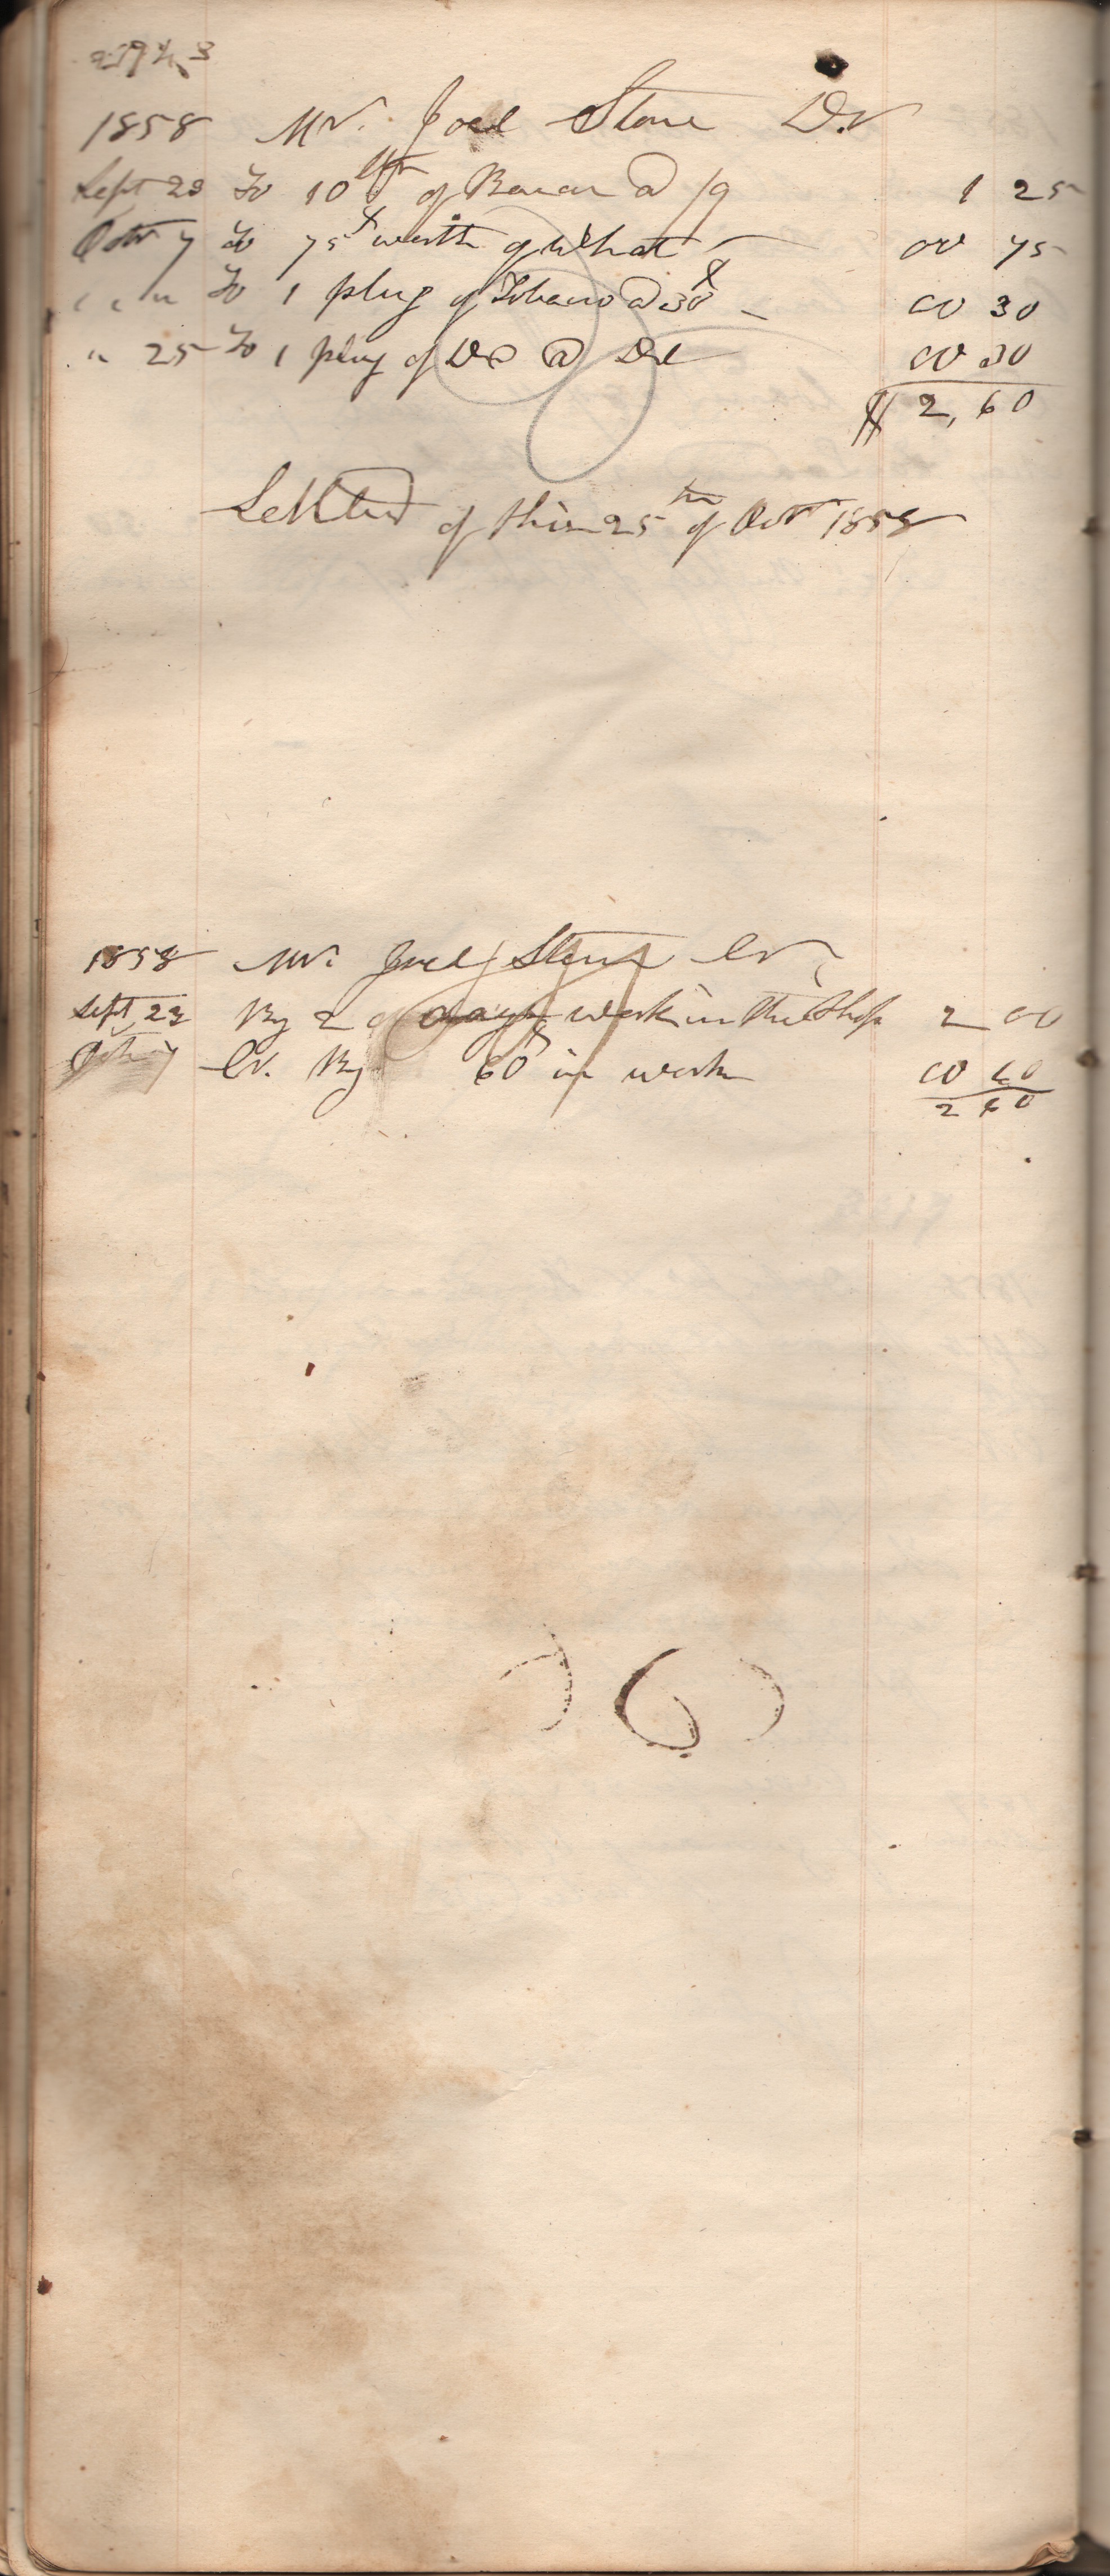 1858 Mr. Joel Stone Dr
Sept 20 To 10 lbs of Bacon @ /9 1 25
Octr 7 To 75 cts worth of Wheat 00 75
" " " To 1 plug of Tobacco @ 30 cts 00 30
" 25 To 1 plug of Do @ Do 00 30
$ 2,60
Settled of this 25th of Octr 1858
1858 Mr. Joel Stone Cr
Sept 23 By 2 days work in the Shop 2 00
Cr. By 60 cts in work 00 60
2 60